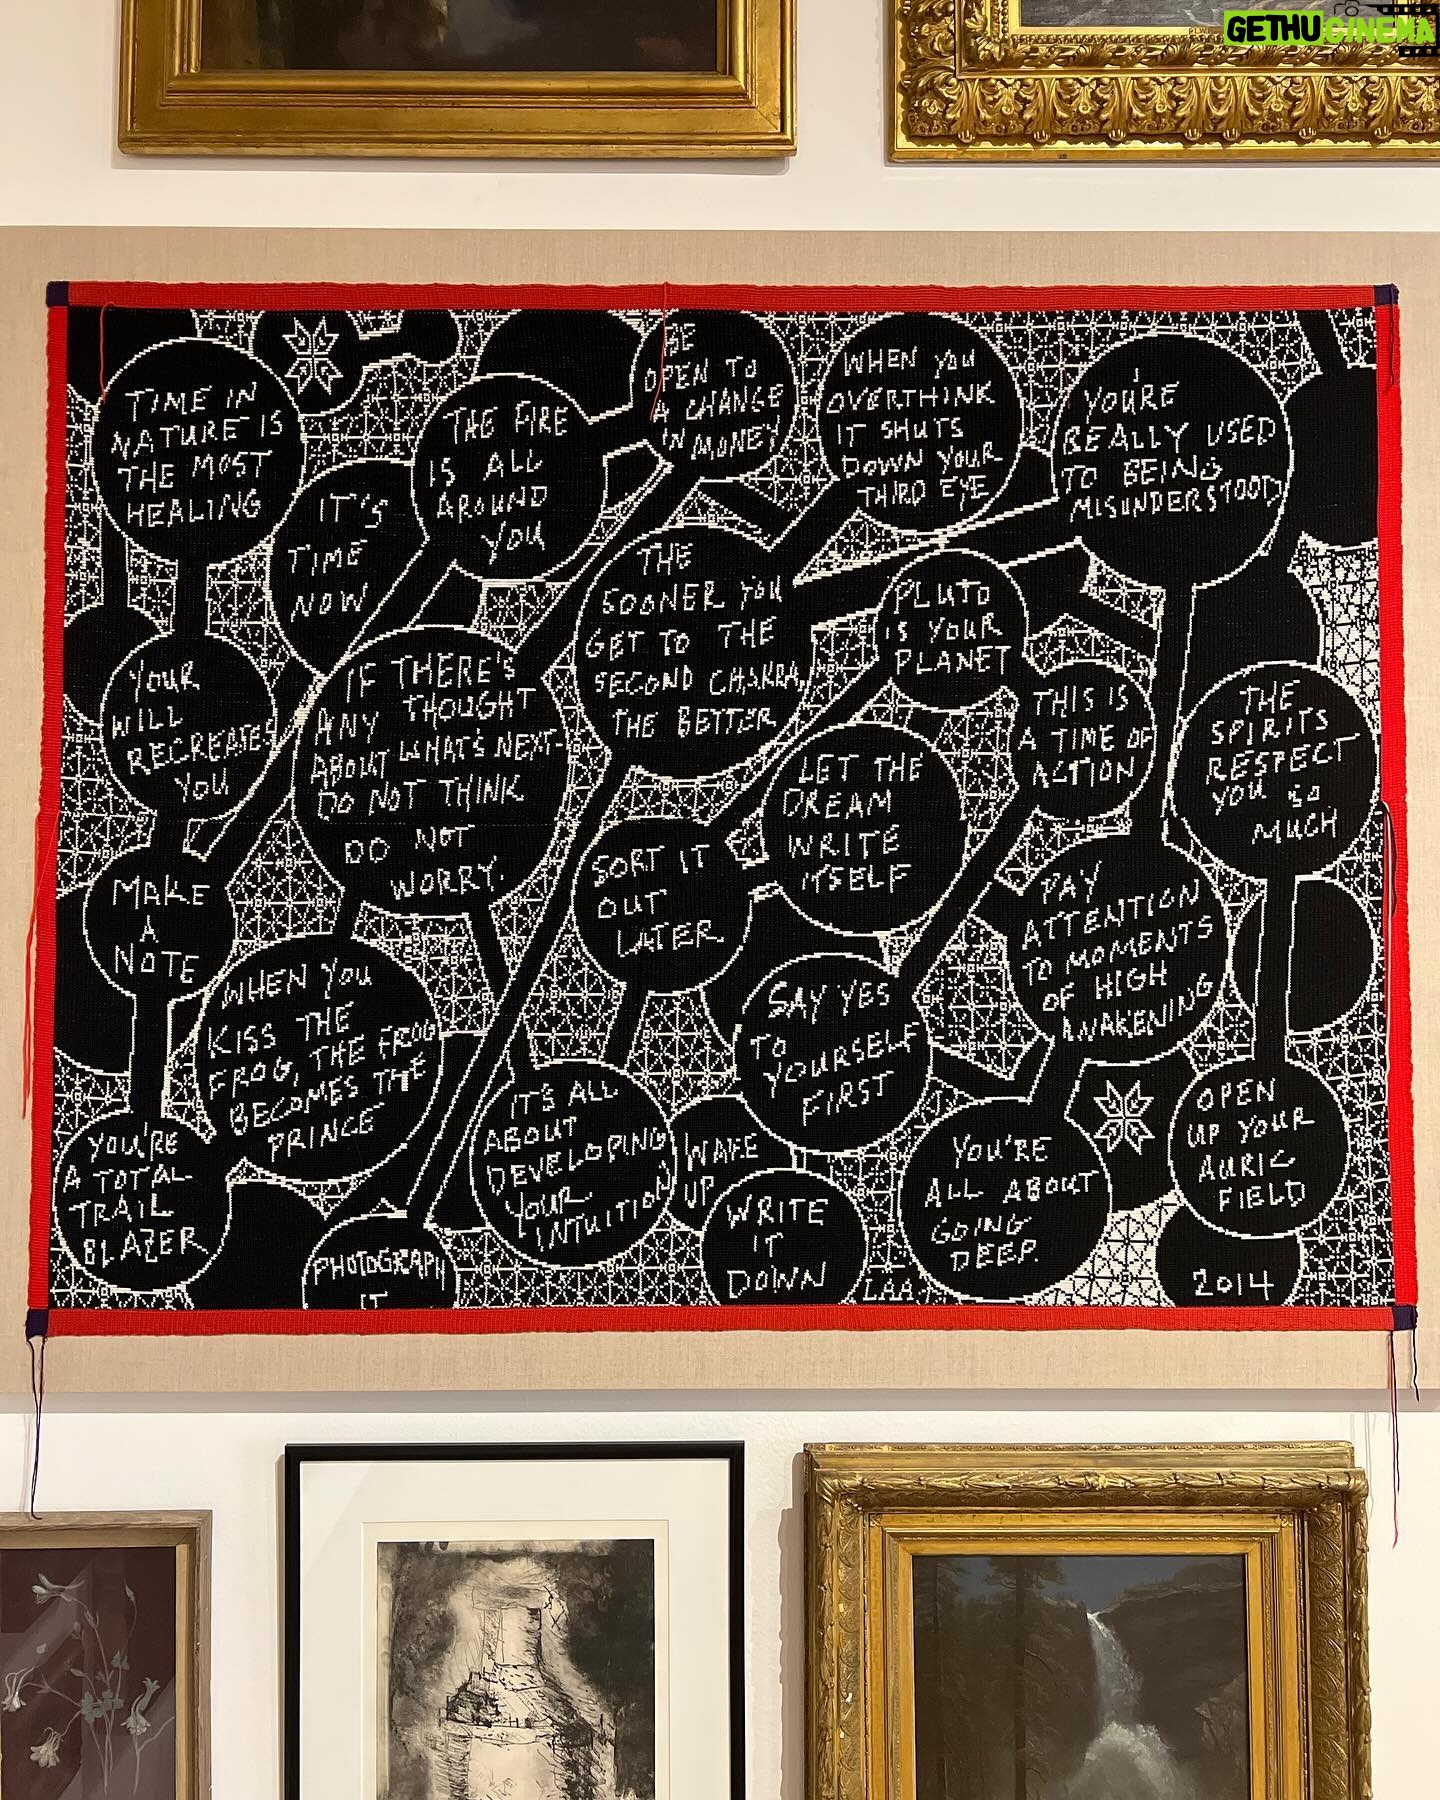 GETHUCINEMA
TIME IN
NATURE IS
THE MOST
HEALING
IT'S
TIME
NOW
THE FIRE
IS ALL
AROUND
YOU
BE
OPEN TO
A CHANGE
IN MONEY
WHEN YOU
OVERTHINK
IT SHUTS
DOWN YOUR
THIRD EYE
YOU'RE
REALLY USED
TO BEING
MISUNDERSTOOD
YOUR
WILL
RECREATES
YOU
IF THERE'S
ANY THOUGHT
ABOUT WHAT'S NEXT-
DO NOT THINK
DO NOT
WORRY.
THE
SOONER YOU
GET TO THE
SECOND CHAKRA,
THE BETTER
PLUTO
IS YOUR
PLANET
THIS IS
A TIME OF
ACTION
THE
SPIRITS
RESPECT
YOU SO
MUCH
MAKE
A
NOTE
SORT IT
OUT
LATER
LET THE
DREAM
WRITE
ITSELF
PAY
ATTENTION
TO MOMENTS
OF HIGH
AWAKENING
WHEN YOU
KISS THE
FROG, THE FROG
BECOMES THE
PRINCE
SAY YES
TO
YOURSELF
FIRST
YOU'RE
A TOTAL
TRAIL
BLAZER
PHOTOGRAPH
IT
IT'S ALL
ABOUT
DEVELOPING
YOUR
INTUITION
WAKE
UP
WRITE
IT
DOWN
LAA
YOU'RE
ALL ABOUT
GOING
DEEP.
OPEN
UP YOUR
AURIC
FIELD
2014